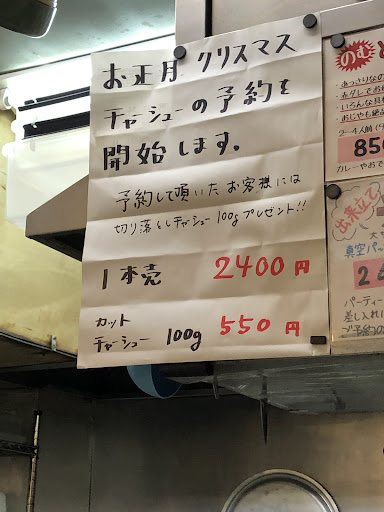 お正月 クリスマス
チャーシューの予約を
開始します。
予約して頂いたお客様には
切り落としチャーシュー100gプレゼント!!
1本売 2400円
カット
チャーシュー 100g 550円
のむ
・あっさりなの
・赤ダレでお
・いろんな具
・おじやも絶品
2〜4人前
850
カレーやおで
出来立て
真空パッ
パーティー
差し入れに
ご予約の